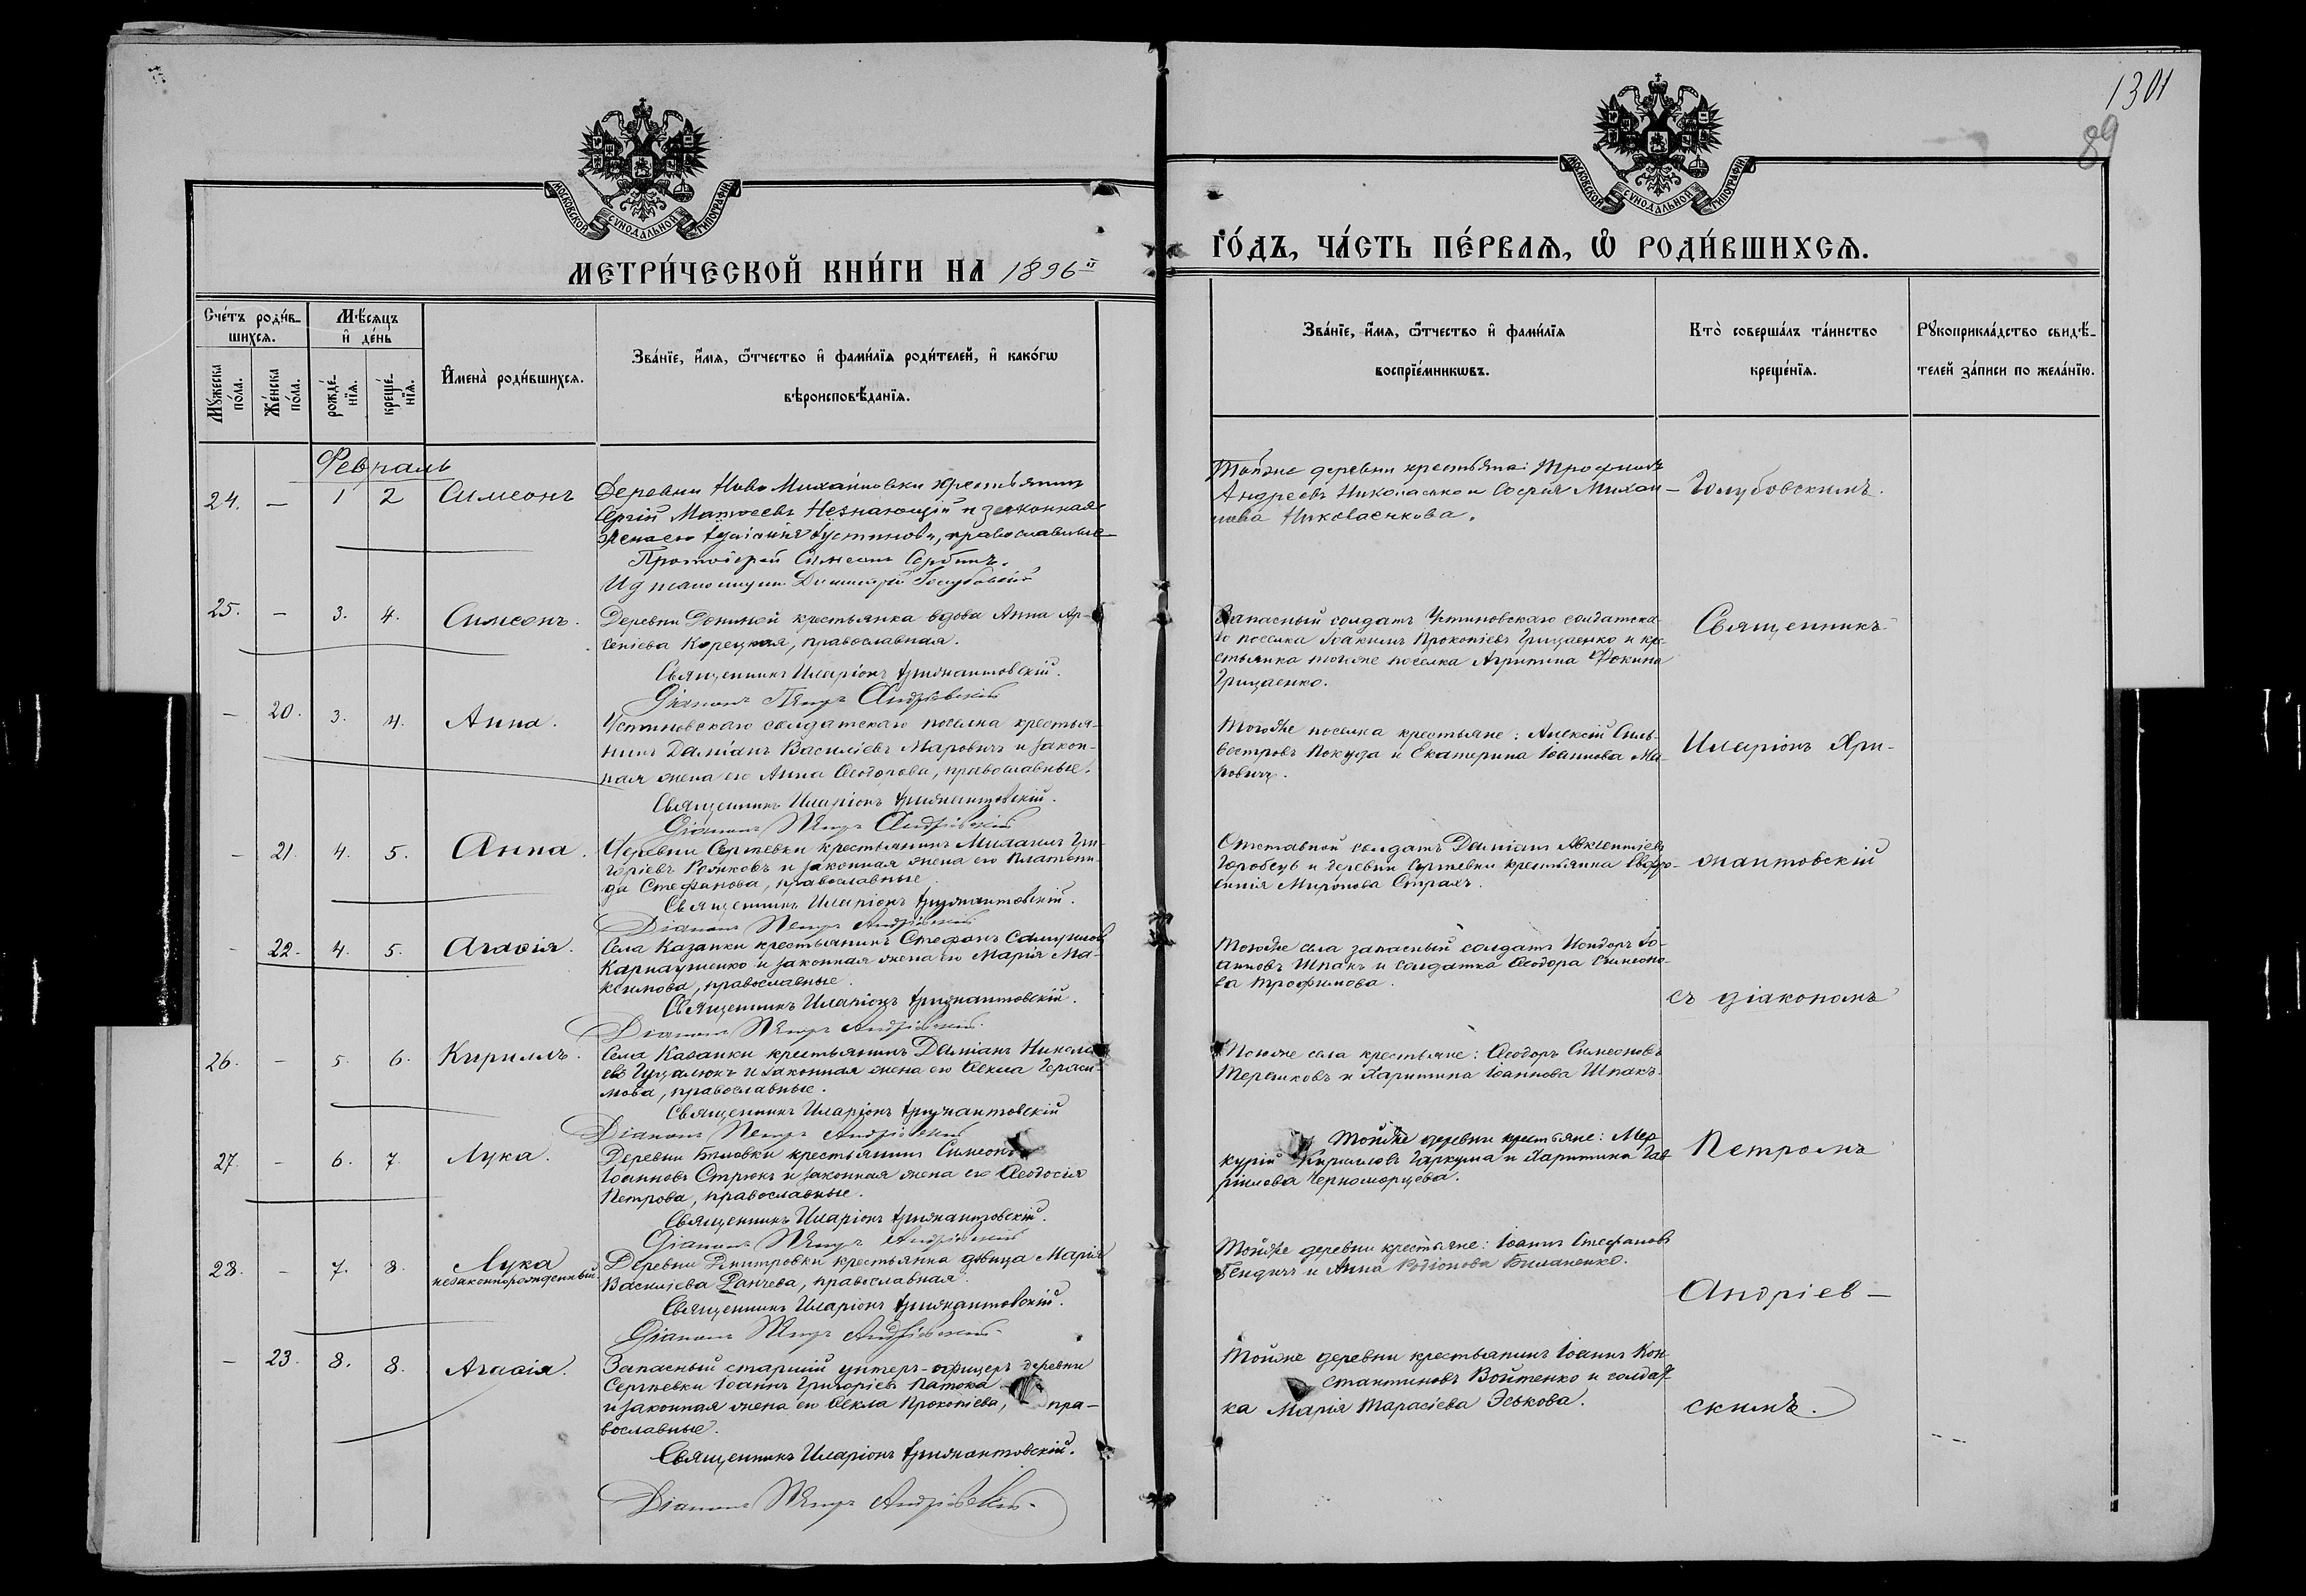 1301
89
МОСКОВСКОЙ СѴНОДАЛЬНОЙ ТИПОГРАФІИ
МОСКОВСКОЙ СѴНОДАЛЬНОЙ ТИПОГРАФІИ
МЕТРИ́ЧЕСКОЙ КНИ́ГИ НА 1896й
ГО́ДЪ, ЧА́СТЬ ПЕ́РВАѦ, Ѽ РОДИ́ВШИХСѦ.
Сче́тъ роди́в-
шихсѧ.
Мѣ́сѧцъ
и҆ де́нь
Мꙋ́жеска
по́ла.
Же́нска
по́ла.
рожде́-
нїѧ.
креще́-
нїѧ.
И҆мена̀ роди́вшихсѧ.
Зва́нїе, и҆́мѧ, ѻ҆́тчество и҆ фами́лїѧ роди́телей, и҆ како́гѡ
вѣроисповѣ́данїѧ.
Зва́нїе, и҆́мѧ, ѻ҆́тчество и҆ фами́лїѧ
воспрїе́мникѡвъ.
Кто̀ соверша́лъ та́инство
креще́нїѧ.
Рꙋкоприкла́дство свидѣ́-
телей за́писи по жела́нїю.
Февраль
24. — 1 2 Симеонъ
Деревни Ново Михайловки крестьянинъ
Сергій Матѳеевъ Незнающій и законная
жена его Іустинова, православные
Протоіерей Симеонъ Сербинъ.
Димитрій Голубовскій
Тойже деревни крестьяне: Трофимъ
Андреевъ Николаенко и Софія Михаи-
лова Николаенкова.
Голубовскимъ.
25. — 3. 4. Симеонъ.
Деревни крестьянка вдова Анна Ар-
сеніева Корецкая, православная.
Священникъ Иларіонъ Крижантовскій.
Діаконъ Петръ Андріевскій
Запасный солдатъ Устиновскаго солдатска-
го поселка Іоакимъ Прокопіевъ Грищенко и кре-
стьянка тогоже поселка Агрипина Фокина
Грищенко.
Священникъ
— 20. 3. 4. Анна.
Устиновскаго солдатскаго поселка крестья-
нинъ Даміанъ Василіевъ Маровичъ и закон-
ная жена его Анна Ѳеодорова, православные.
Священникъ Иларіонъ Крижантовскій.
Діаконъ Петръ Андріевскій
Тогоже поселка крестьяне: Алексій Силь-
вестровъ Покуца и Екатерина Іоаннова Ма-
ровичъ.
Иларіонъ Кри-
— 21. 4. 5. Анна.
Деревни Сергеевки крестьянинъ Гри-
горіевъ Рожковъ и законная жена его Платони-
да Стефанова, православные
Священникъ Иларіонъ Крижантовскій.
Діаконъ Петръ Андріевскій
Отставной солдатъ Даміанъ Авксентіевъ
Горобецъ и деревни Сергеевки крестьянка Евфро-
синія Миронова Страхъ.
жантовскій
— 22. 4. 5. Агаѳія.
Села Казанки крестьянинъ Стефанъ Самуиловъ
Карнаушенко и законная жена его Марія Ма-
ксимова, православные.
Священникъ Иларіонъ Крижантовскій.
Діаконъ Петръ Андріевскій.
Тогоже села запасный солдатъ Исидоръ Іо-
анновъ Шпакъ и солдатка Ѳеодора Симеоно-
ва Трофимова.
съ діакономъ
26. — 5. 6. Кириллъ.
Села Казанки крестьянинъ Даміанъ Никола-
евъ Гуцалюкъ и законная жена его Ѳекла Гераси-
мова, православные.
Священникъ Иларіонъ Крижантовскій
Діаконъ Петръ Андріевскій
Тогоже села крестьяне: Ѳеодоръ Симеоновъ
Терешковъ и Харитина Іоаннова Шпакъ.
27. — 6. 7. Лука.
Деревни Бѣловки крестьянинъ Симеонъ
Іоанновъ Стрюкъ и законная жена его Ѳеодосія
Петрова, православные.
Священникъ Иларіонъ Крижантовскій.
Діаконъ Петръ Андріевскій
Тойже деревни крестьяне: Мер-
курій Кирилловъ Гаркуша и Харитина Гав-
ріилова Черноморцева.
Петромъ
28. — 7. 8. Лука
незаконнорожденный.
Деревни Дмитровки крестьянка дѣвица Марія
Василіева Ганчева, православная.
Священникъ Иларіонъ Крижантовскій.
Діаконъ Петръ Андріевскій.
Тойже деревни крестьяне: Іоаннъ Стефановъ
Гендичъ и Анна Родіонова Биланенко.
Андріев-
— 23. 8. 8. Агаѳія.
Запасный старшій унтеръ-офицеръ деревни
Сергеевки Іоаннъ Григоріевъ Патока
и законная жена его Ѳекла Прокопіева, пра-
вославные.
Священникъ Иларіонъ Крижантовскій.
Діаконъ Петръ Андріевскій.
Тойже деревни крестьянинъ Іоаннъ Кон-
стантиновъ Войтенко и солдат-
ка Марія Тарасіева Эськова.
скимъ.